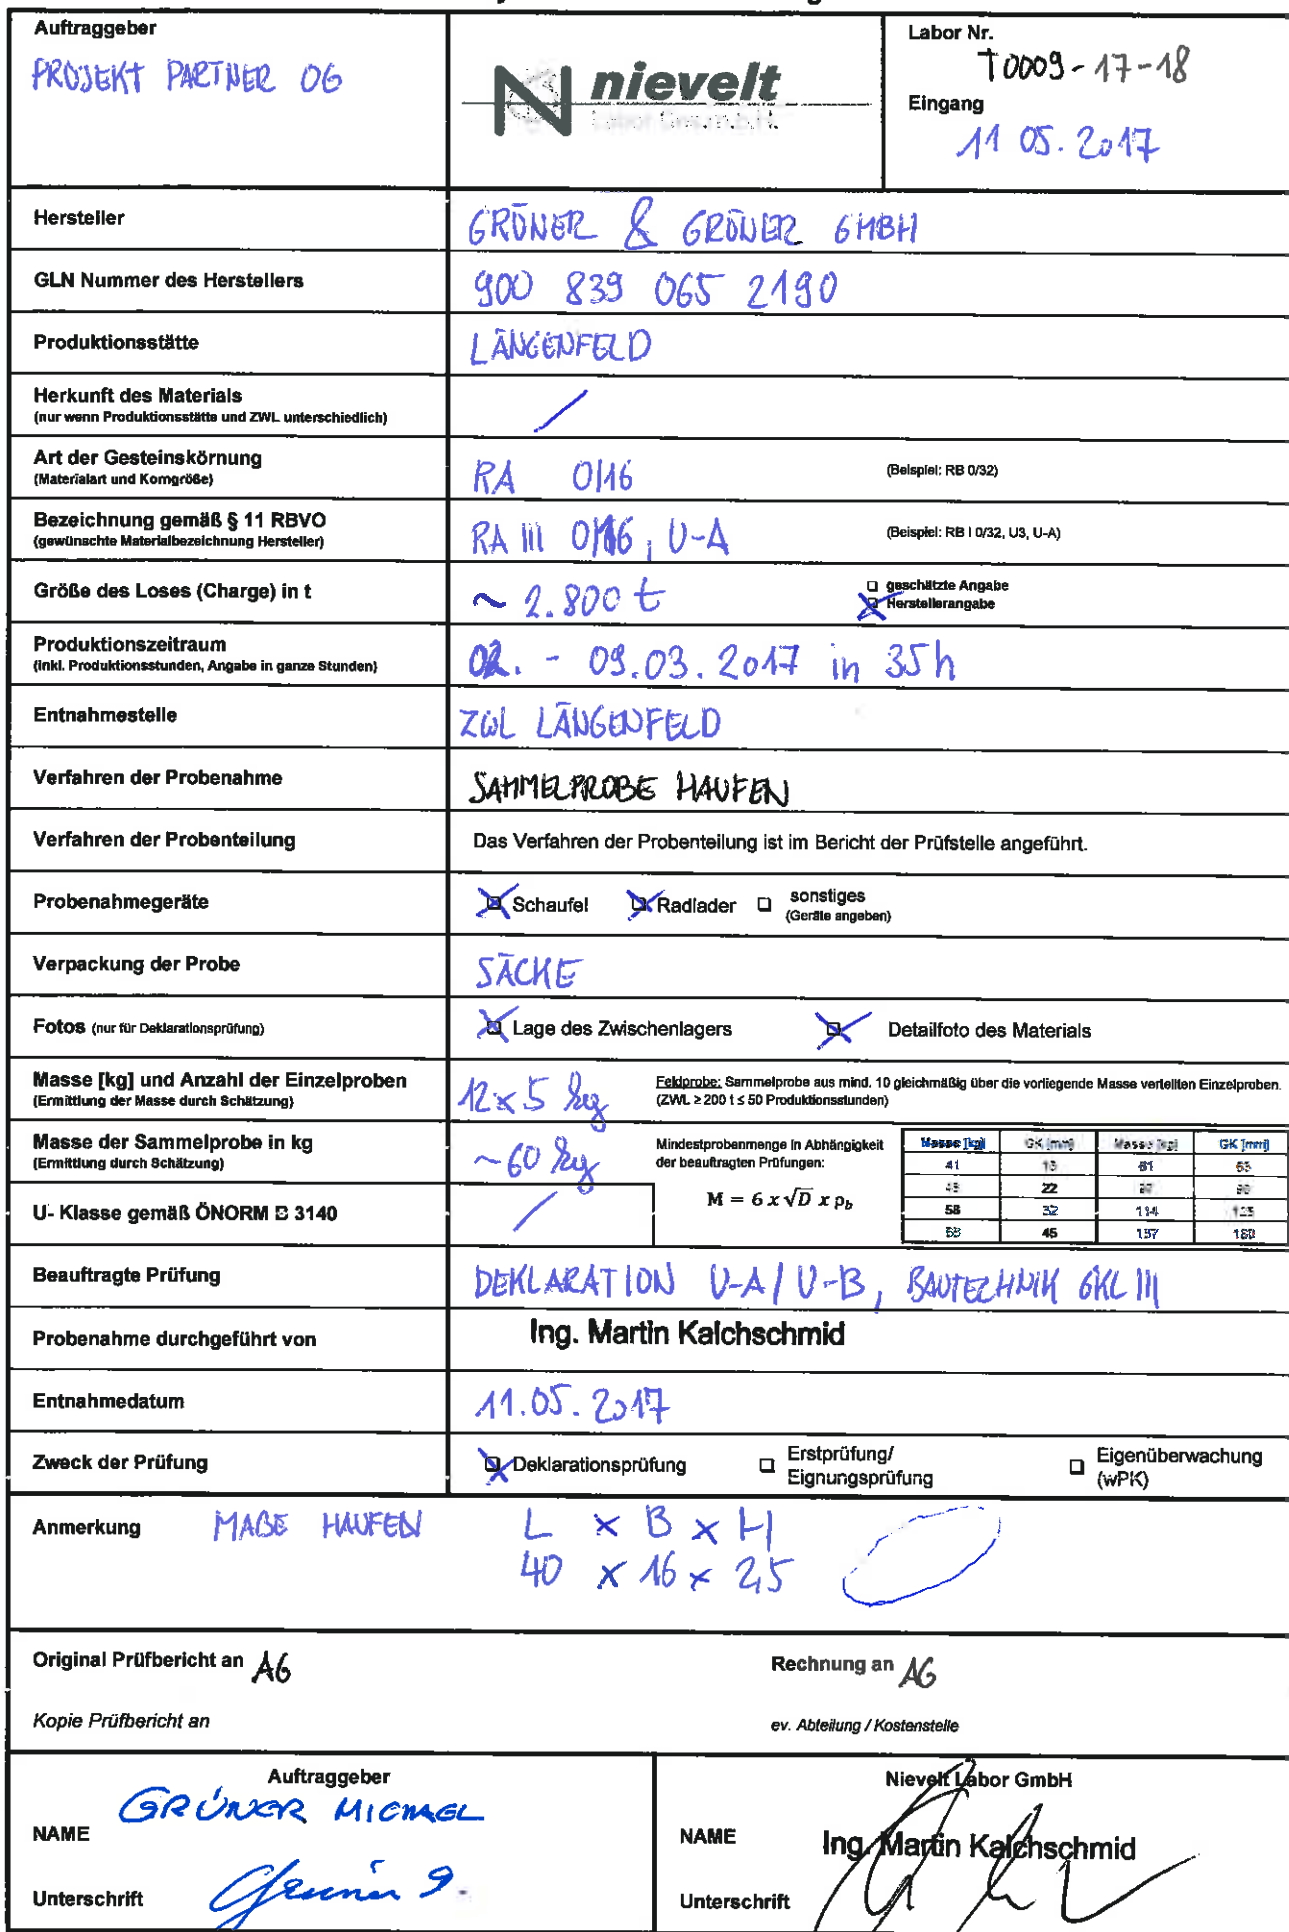 Auftraggeber
PROJEKT PARTNER OG
nievelt
Labor Ges.m.b.H.
Labor Nr.
T0009-17-18
Eingang
11 05. 2017
Hersteller
GRÜNER & GRÜNER GMBH
GLN Nummer des Herstellers
900 839 065 2190
Produktionsstätte
LÄNGENFELD
Herkunft des Materials
(nur wenn Produktionsstätte und ZWL unterschiedlich)
/
Art der Gesteinskörnung
(Materialart und Korngröße)
RA 0/16
(Beispiel: RB 0/32)
Bezeichnung gemäß § 11 RBVO
(gewünschte Materialbezeichnung Hersteller)
RA III 0/16, U-A
(Beispiel: RB I 0/32, U3, U-A)
Größe des Loses (Charge) in t
~ 2.800 t
geschätzte Angabe
Herstellerangabe
Produktionszeitraum
(inkl. Produktionsstunden, Angabe in ganze Stunden)
02. - 09.03.2017 in 35h
Entnahmestelle
ZWL LÄNGENFELD
Verfahren der Probenahme
SAMMELPROBE HAUFEN
Verfahren der Probenteilung
Das Verfahren der Probenteilung ist im Bericht der Prüfstelle angeführt.
Probenahmegeräte
Schaufel Radlader sonstiges
(Geräte angeben)
Verpackung der Probe
SÄCKE
Fotos (nur für Deklarationsprüfung)
Lage des Zwischenlagers Detailfoto des Materials
Masse [kg] und Anzahl der Einzelproben
(Ermittlung der Masse durch Schätzung)
12 x 5 kg
Feldprobe: Sammelprobe aus mind. 10 gleichmäßig über die vorliegende Masse verteilten Einzelproben.
(ZWL ≥ 200 t ≤ 50 Produktionsstunden)
Masse der Sammelprobe in kg
(Ermittlung durch Schätzung)
~60 kg
Mindestprobenmenge in Abhängigkeit
der beauftragten Prüfungen:
M = 6 x √D x ρb
Masse [kg] GK [mm] Masse [kg] GK [mm]
41 81 63
22
58 32 114 125
45 137 180
U- Klasse gemäß ÖNORM B 3140
/
Beauftragte Prüfung
DEKLARATION U-A/U-B, BAUTECHNIK GKL III
Probenahme durchgeführt von
Ing. Martin Kalchschmid
Entnahmedatum
11.05.2017
Zweck der Prüfung
Deklarationsprüfung
Erstprüfung/
Eignungsprüfung
Eigenüberwachung
(wPK)
Anmerkung MAßE HAUFEN L x B x H
40 x 16 x 2,5
Original Prüfbericht an AG
Rechnung an AG
Kopie Prüfbericht an
ev. Abteilung / Kostenstelle
Auftraggeber
NAME GRÜNER MICHAEL
Unterschrift
Nievelt Labor GmbH
NAME Ing. Martin Kalchschmid
Unterschrift